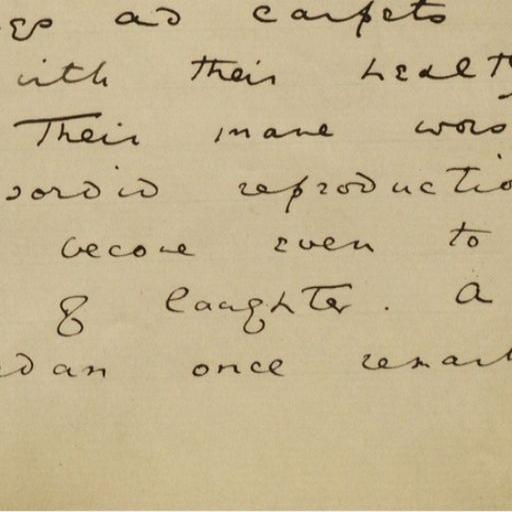 gs and carpets
with their healthy
Their inane wors
sordid reproductio
become even to
of laughter. A
edan once remark